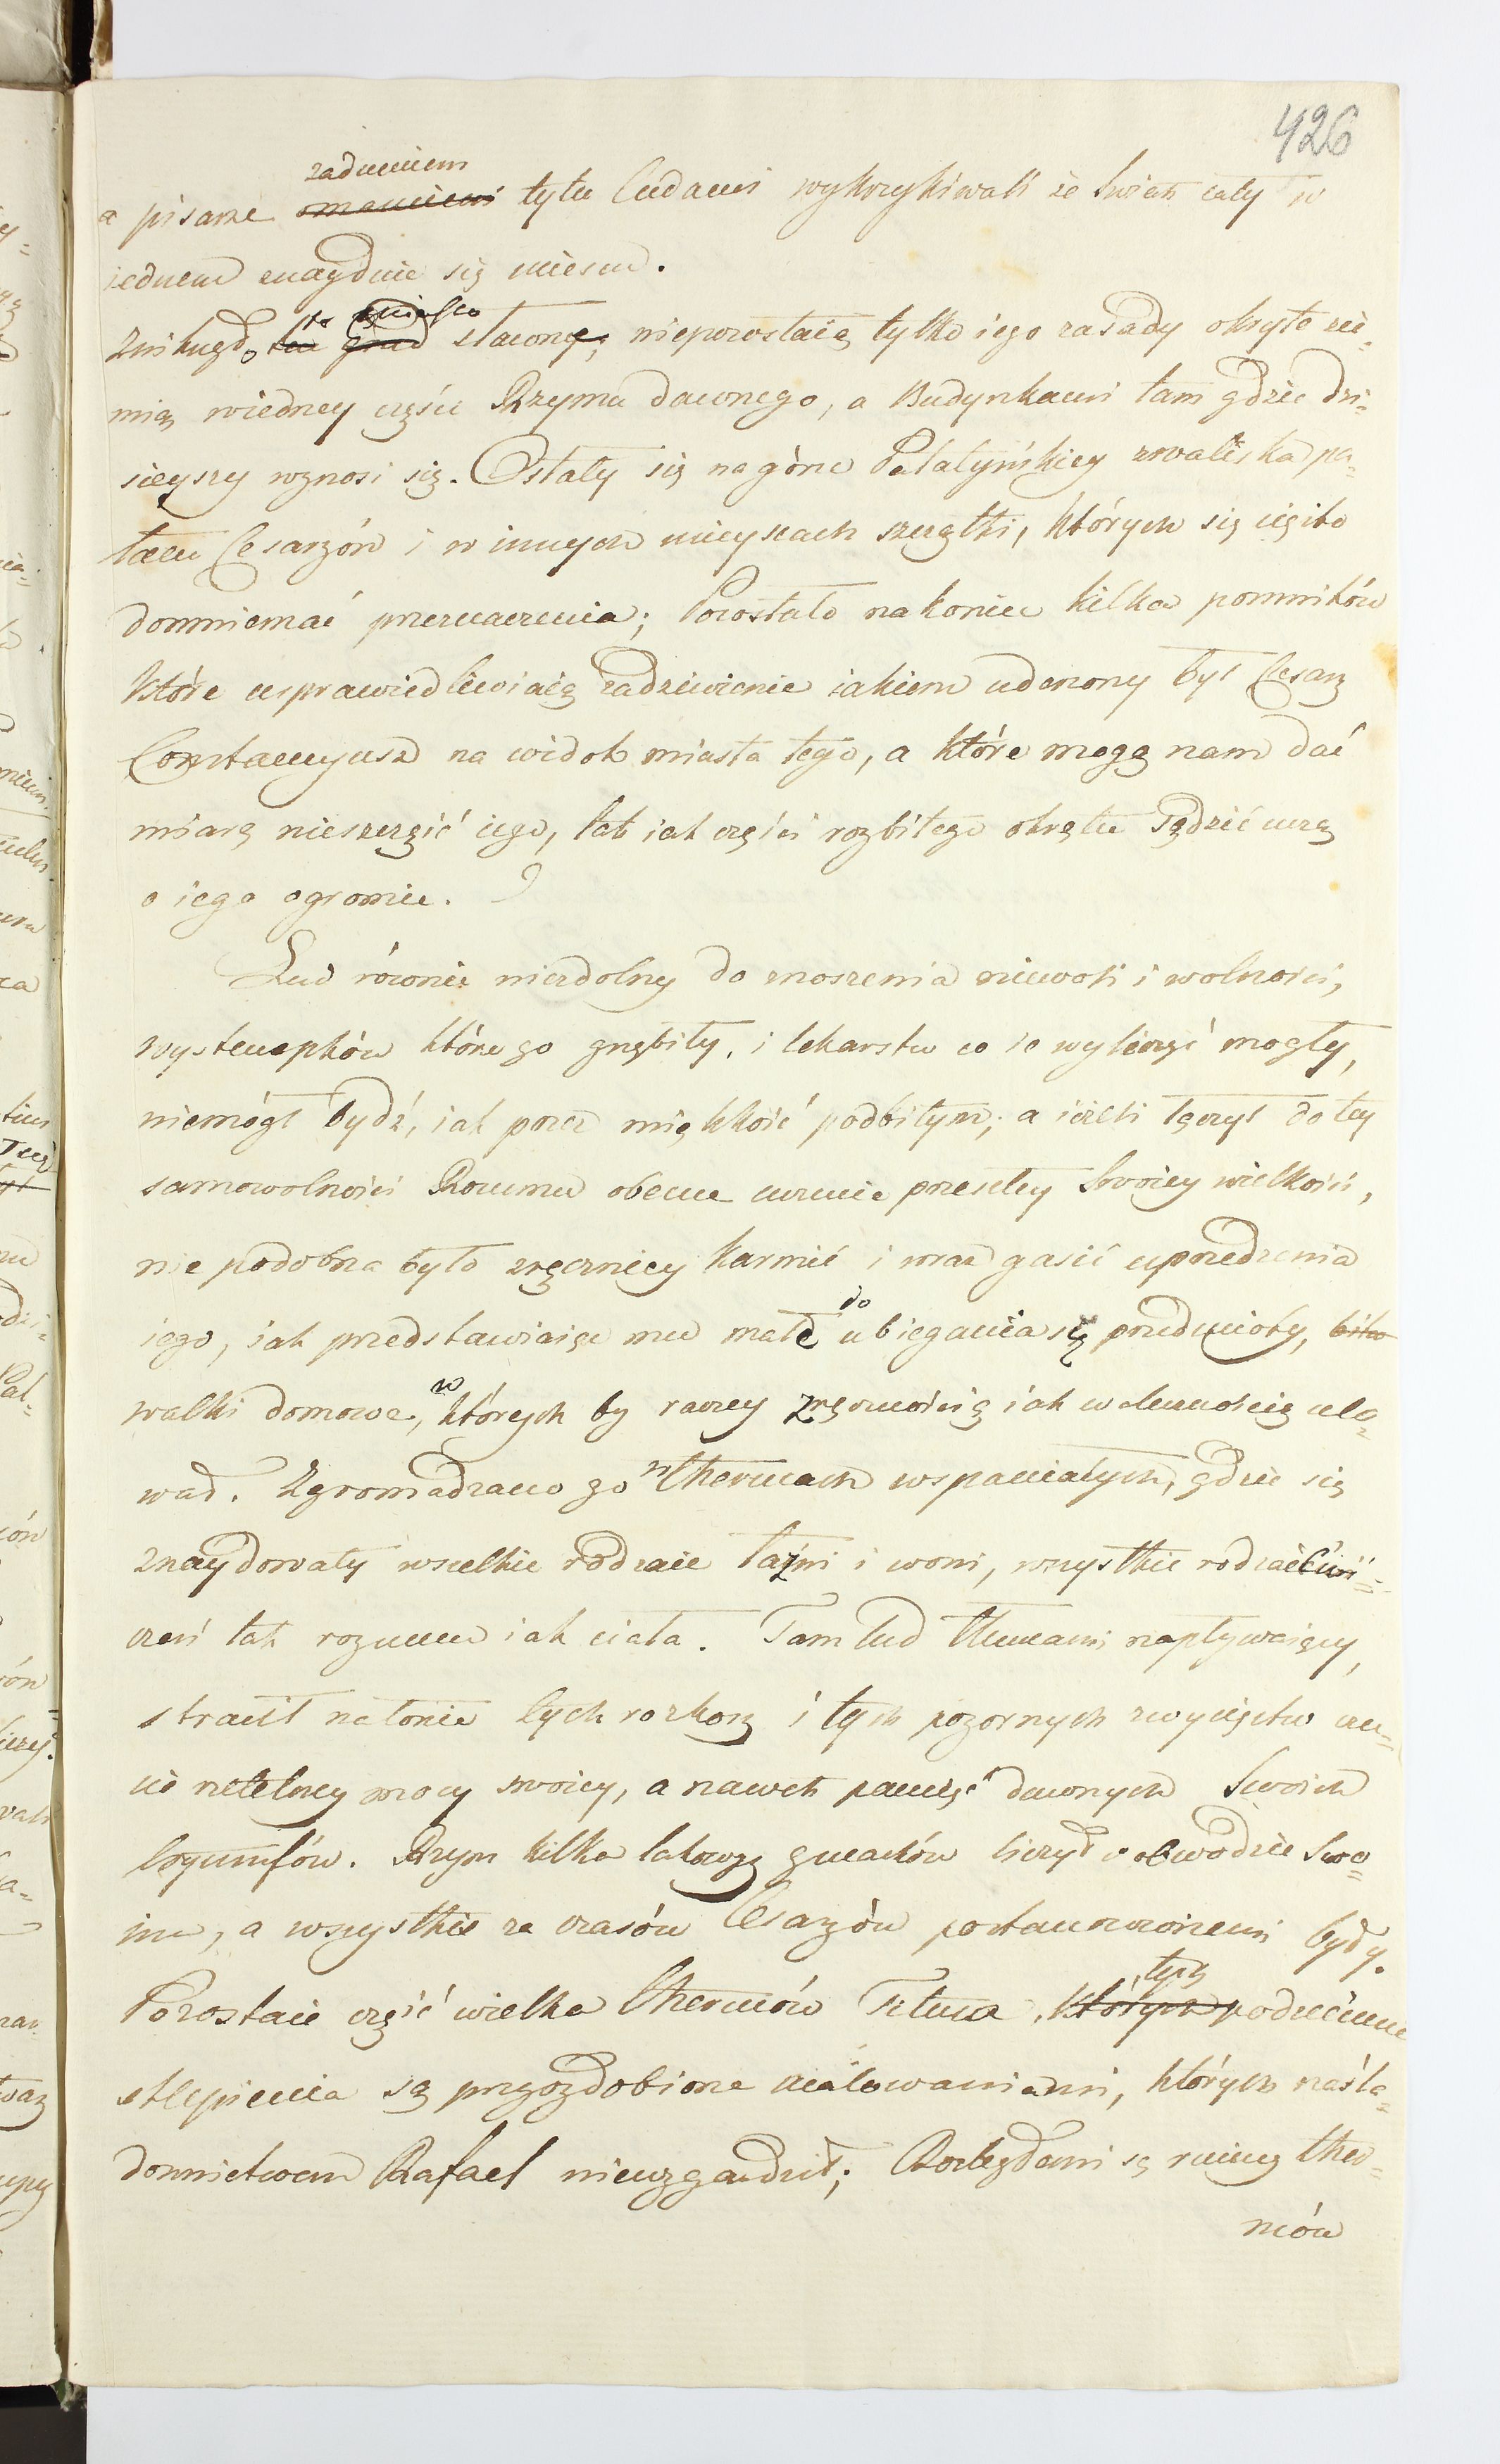 426
zadumieni
a pisarze omamieni tylu cudami wykrzykiwali że świat cały w
iednem znayduie się miescu.
to miasto
Zniknęło ten gród sławny, niepozostaią tylko iego zasady okryte zie=
mią wiedney części Rzymu dawnego, a Budynkami tam gdzie dzi=
sieyszy wznosi się. Ostały się na górze Palatyńskiey zwaliska pa=
łacu Cesarzów i w innych mieyscach szczątki, których się ciężko
domniemać przeznaczenia; Pozostało nakoniec kilka pomników
które usprawiedliwiaią zadziwienie iakiem uderzony był Cesarz
Constancyusz na widok miasta tego, a które mogą nam dać
miarę nieszczęść iego, tak iak części rozbitego okrętu sądzić uczą
o iego ogromie.
Lud równie niezdolny do znoszenia niewoli i wolności,
występków które go gnębiły, i lekarstw co ie wyleczyć mogły,
niemógł bydź, iak przez miękkość podbitym; a ieżeli łączył do tey
samowolności Rozumu obecne uczucie przeszłey swoiey wielkości,
nie podobna było zręczniey karmić i wraz gasić uprzedzenia
iego, iak przedstawiaiąc mu małe do ubiegania się przedmioty,
walki domowe, w których by raczey zręcznością iak walecznością celo=
wał. Zgromadzano go w Thermach wspaniałych, gdzie się
znaydowały wszelkie rodzaie łaźni i woni, wszystkie rodzaie ćwi=
czeń tak rozumu iak ciała. Tam lud tłumami napływaiący,
stracił na łonie tych rozkosz i tych pozornych zwycięstw czu=
cie rzetelney mocy swoiey, a nawet pamięć dawnych swoich
tryumfów. Rzym kilka takowych gmachów liczył w obwodzie swo=
im, a wszystkie za czasów Cesarzów postanowionemi były.
Pozostaie część wielka Thermów Tytusa, których tych podziemne
sklepienia są przyozdobione malowaniami, których naśla=
downictwem Rafael niewzgardził; Rozległemi są ruiny ther=
mów